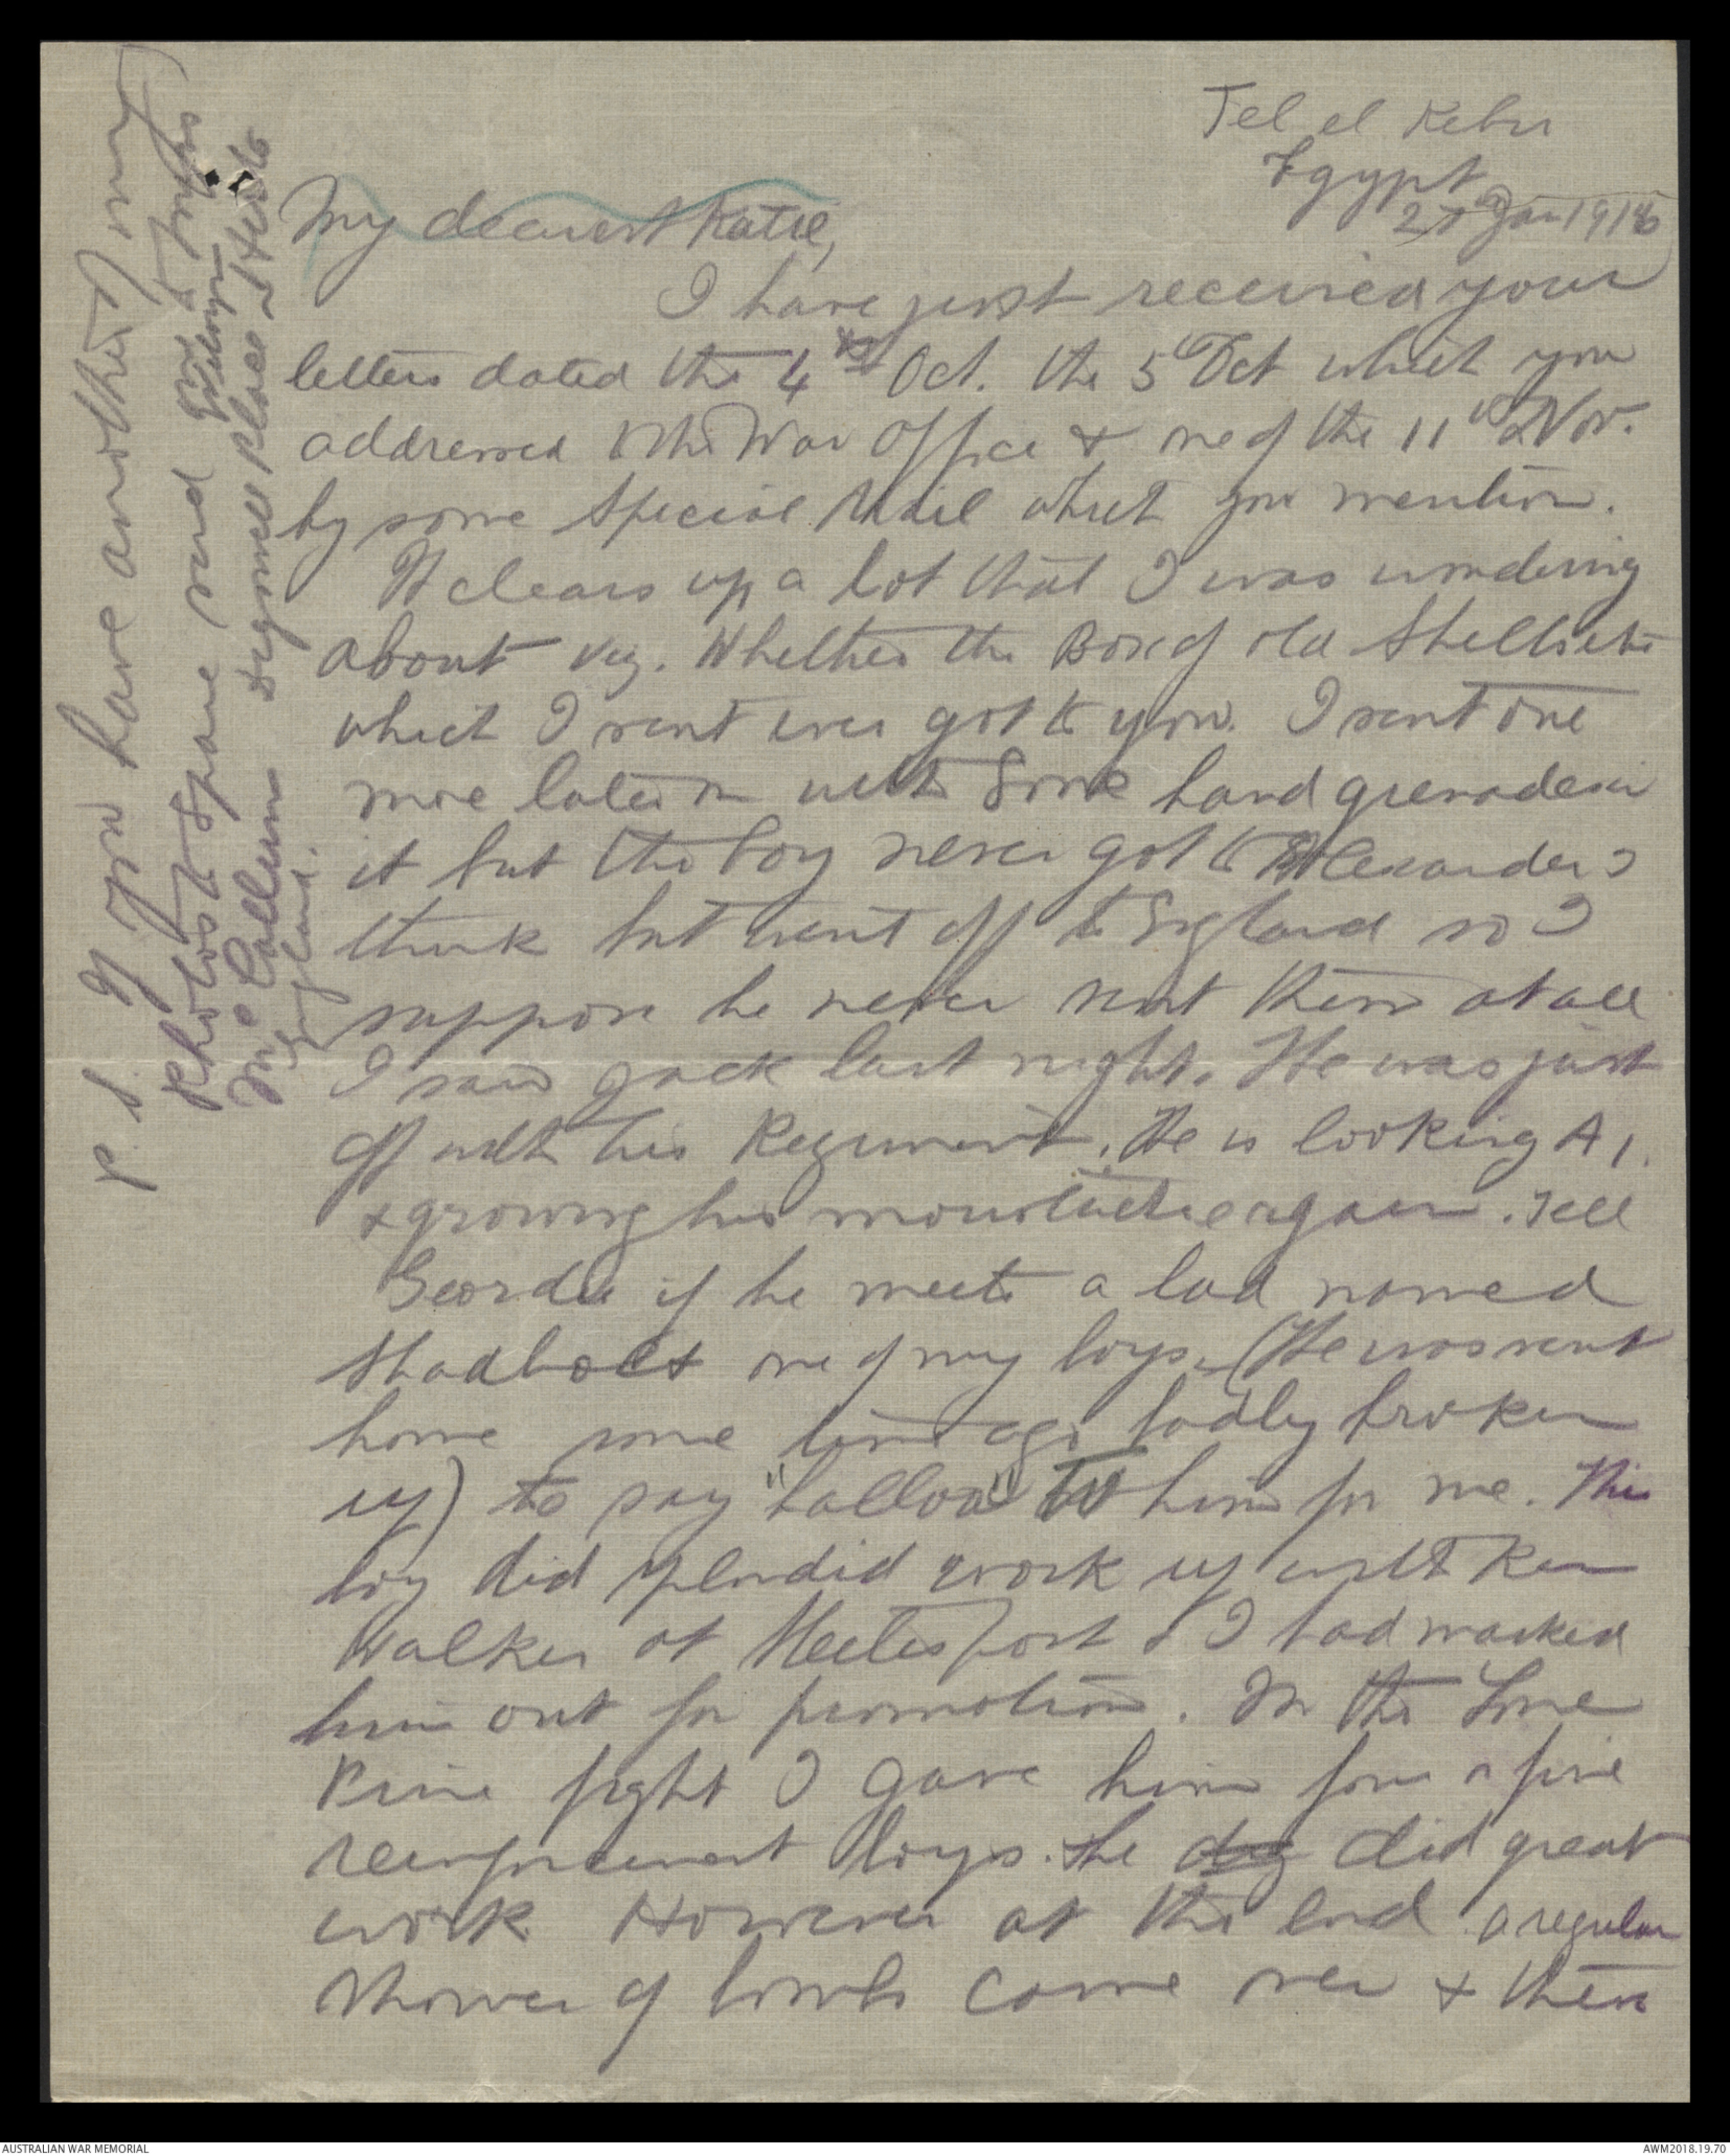 Tel el Kebir
Egypt
27 Jan 1916
My dearest Katie,
I have just received your
letters dated the 4th Oct. the 5th Oct which you
addressed to the War Office & one of the 11th Nov.
by some Special Mail which you mention.
It clears up a lot that I was wondering
about viz. Whether the Box of old Shells etc
which I sent ever got to you. I sent one
more later on with some hand grenades in
it but the boy never got to Alexander I
think but went off to England so I
suppose he never sent them at all
I saw Jack last night. He was just
off with his Regiment. He is looking A1.
& growing his moustache again. Tell
Geordie if he meets a lad named
Shadbolt one of my boys. (He was sent
home some time ago badly broken
up) to say "halloa" to him for me. This
boy did splendid work up with Ken
Walker at Steeles post & I had marked
him out for promotion. In the Lone
Pine fight I gave him four or five
reinforcement boys. He did great
work However at the end a regular
shower of bombs came over & there
P.S. If you have another of my
Photos to spare send it to
McCallum Digswell Place
England.
AUSTRALIAN WAR MEMORIAL
AWM2018.19.70